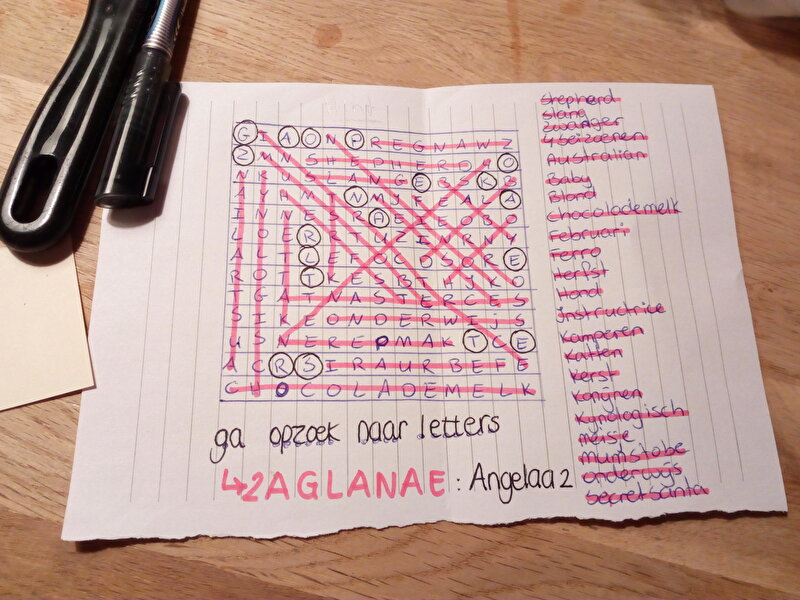 G I A O N P R E G N A W Z
Z M N S H E P H E R D O O
N K U S L A N G E R S K B
A Y H M I N M J F E A L A
I N N E S R A E X E O B O
L O E R T U Z I N R N Y
A L T L E F O C O S O R E
R O T T K E S B T H J K O
T G A T N A S T E R C E S
S I K E O N D E R W ij S
U S N E R E P M A K T C E
A C R S I R A U R B E F E
C H O C O L A D E M E L K
ga opzoek naar letters
42AGLANAE : Angelaa2
Shepherd
Slang
Zwanger
4 seizoenen
Australian
Baby
Blond
Chocolademelk
Februari
Ferro
Herfst
Hond
Instructrice
Kamperen
Katten
Kerst
Konijnen
Kynologisch
meisje
mumstobe
onderwijs
secretsanta